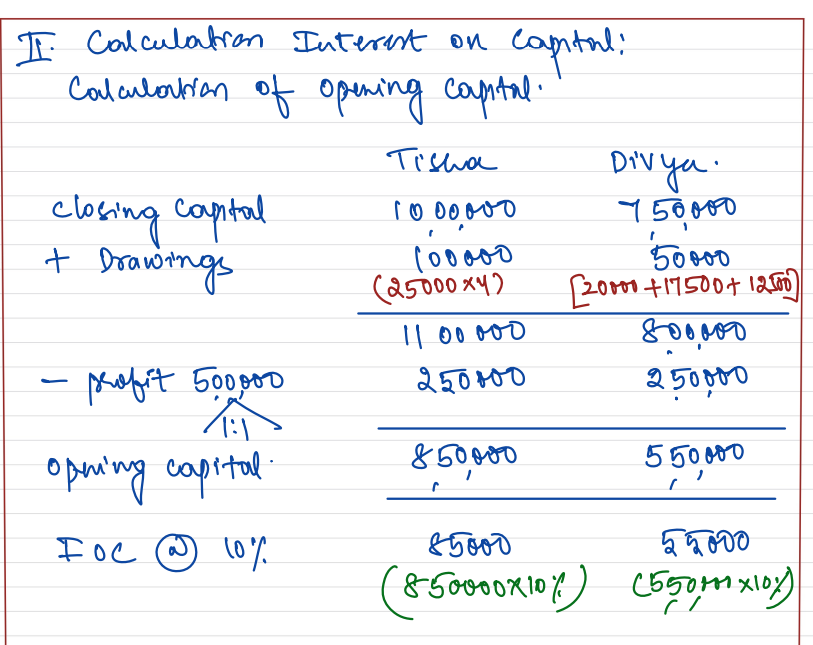 II. Calculation Interest on Capital:
Calculation of opening capital.
Tisha Divya.
closing capital 10,00,000 750,000
+ Drawings 100000 50000
(25000x4) [20000+17500+12500]
1100000 800,000
- profit 500,000 250000 250,000
1:1
opening capital. 850,000 550,000
IOC @ 10% 85000 55000
(850000x10%) (550,000x10%)